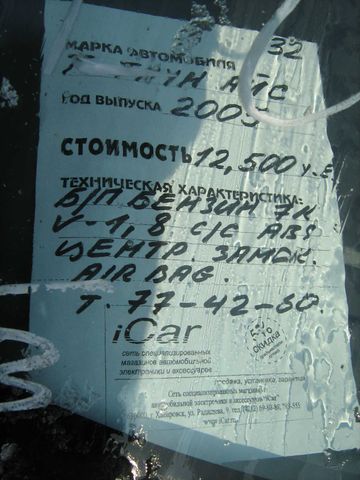 32
МАРКА АВТОМОБИЛЯ
АЙС
ГОД ВЫПУСКА 2005
СТОИМОСТЬ 12,500 у.е.
ТЕХНИЧЕСКАЯ ХАРАКТЕРИСТИКА:
Б/П БЕНЗИН
V-1,8 С/С ABS
ЦЕНТР. ЗАМОК.
AIR BAG.
Т. 77-42-60.
iCar
сеть специализированных
магазинов автомобильной
электроники и аксессуаров
скидка
продажа, установка, гарантия
Сеть специализированных магазинов
автомобильной электроники и аксессуаров "iCar"
г. Хабаровск, ул. Радищева, 9
www.iCar.ru